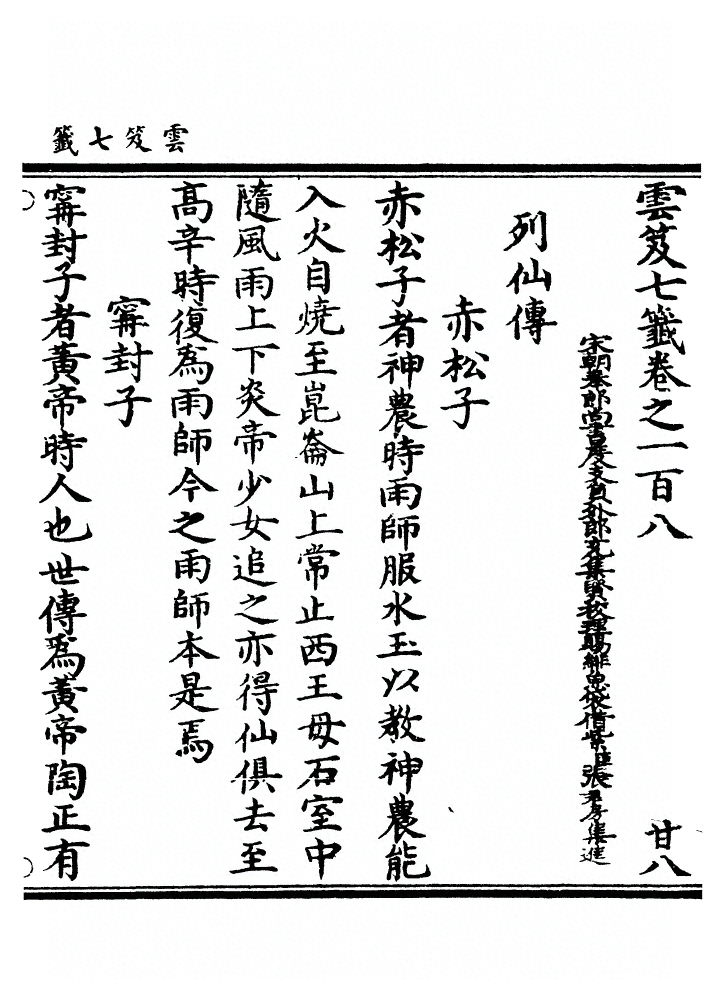 雲笈七籤
雲笈七籤卷之一百八 廿八
宋朝奉郎尚書度支員外郎充集賢校理賜緋魚袋借紫臣張君房集進
列仙傳
赤松子
赤松子者神農時雨師服水玉以教神農能
入火自燒至崑崙山上常止西王母石室中
隨風雨上下炎帝少女追之亦得仙俱去至
高辛時復爲雨師今之雨師本是焉
甯封子
甯封子者黃帝時人也世傳爲黃帝陶正有